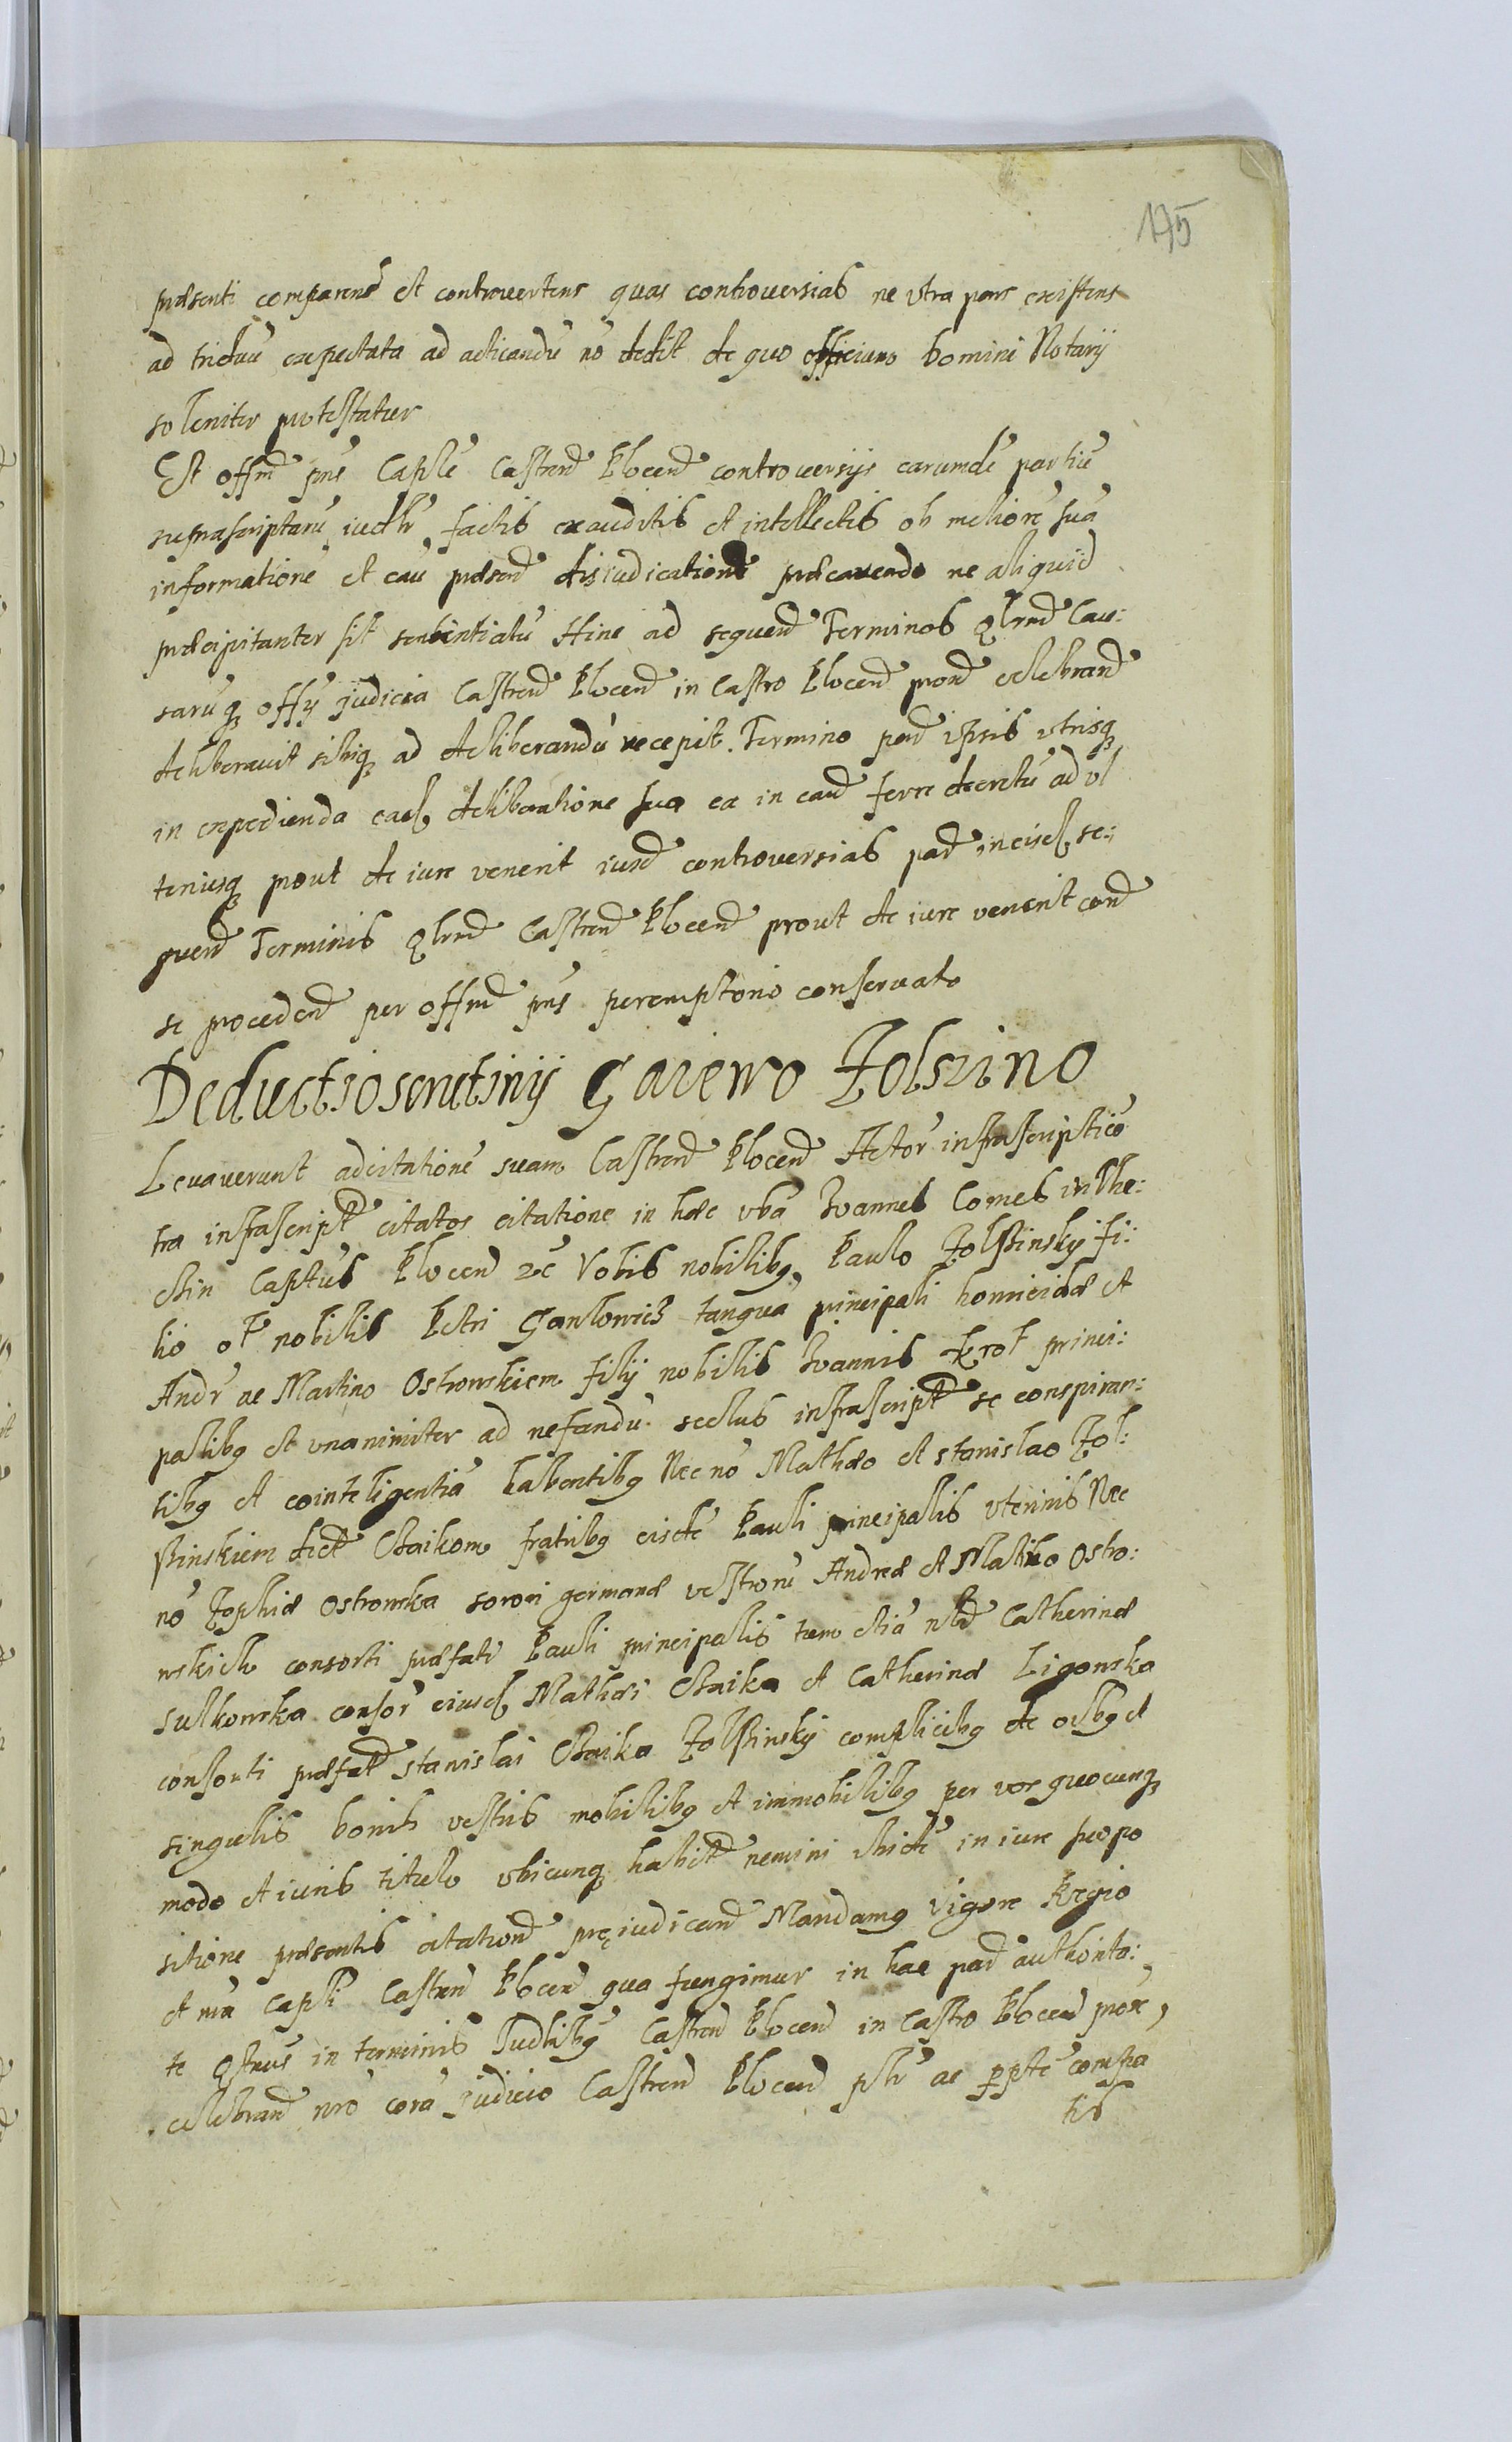 175
præsenti comparens et controvertens quas controversias ne utra pars existens
ad triduũ expectata ad acticandũ nõ dedit de quo officium Domini Notarij
soleniter protestatur
Et offm pns Caple Castren Plocen controversijs earumdẽ partiũ
suprascriptarũ iudlr factis exauditis et intellectis ob meliorẽ suã
informationẽ et cau præsen disiudicationẽ præcavendo ne aliquid
præcipitanter sit sententiatũ Hinc ad sequen Terminos Qlrm Cau:
sarũq offij judicia Castren Plocen in Castro Plocen pron celebran
deliberavit sibiq ad deliberandũ recepit. Termino par ipsis utrisq
in expedienda ead deliberatione sua ea in eand ferre decretũ ad ul
teriusq prout de iure venerit iurd controversias par in eisd se:
quen Terminis Qlrm Castren Plocen prout de iure venerit con
se proceden per offm pns peremptorie conservato
Deductio scrutinij Gaiewo Zolszino
Levaverunt adcitationẽ suam Castren Plocen Actor infrascripti cõ
tra infrascript citatos citatione in hæc vba Joannes Comes in The:
chin Captus Plocen zc Vobis nobilibq Paulo Zolszinsky fi:
lio ol nobilis Petri Gawlowicz tanquã principali homicidæ et
Andr ac Martino Ostrowskiem filij nobilis Joannis Krot princi:
palibq et unanimiter ad nefandũ scelus infrascript se conspiran:
tibq et cointeligentiã habentibq Nec nõ Mathæo et Stanislao Zol:
szinskiem dict Czaikom fratribq eisdẽ Pauli principalis uterinis Nec
nõ Zophiæ Ostrowska sorori germanæ vestrorũ Andreæ et Matheo Ostro:
wskich consorti præfati Pauli principalis tum etiã nbl Catherinæ
Sulkowska consor eiusd Mathæi Czaika et Catherinæ Ligowska
consorti præfat Stanislai Czaika Zolszinsky complicibq de oibq et
singulis bonis vestris mobilibq et immobilibq per vos quocunq
modo et iuris titulo ubicunq habit nemini ibidẽ in iure suo po
sitione præsentis citation præiudican Mandamq Vigore Regio
et nra Capli Castren Plocen qua fungimur in hac par authorita:
te Qtnus in terminis Judlibq Castren Plocen in Castro Plocen prox,
celebran nro corã judicio Castren Plocen plr ac pptẽ compa
tis